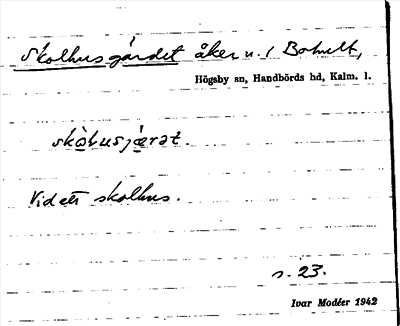 Skolhusgärdet åker u. /
Högsby sn, Handbörds hd, Kalm. l.
Vid ett skolhus.
s. 23.
Ivar Modéer 1942